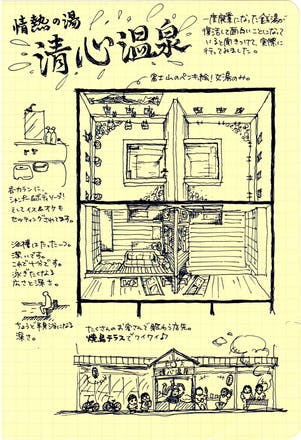 情熱の湯
清心温泉
一度廃業になった銭湯が
復活して面白いことになって
いると聞きつけて、実際に
行ってみました。
富士山のペンキ絵！女湯のみ。
各カランに、
シャンプー&ボディソープ！
そしてイス&オケも
セッティングされてます。
浴槽はたった一つ。
深いです。
これで十分です。
泳ぎたくなる
広さと深さ。
ちょうど半身浴になる
深さ。
たくさんのお客さんで賑わう店先。
焼鳥テラスでワイワイ♪
清心温泉